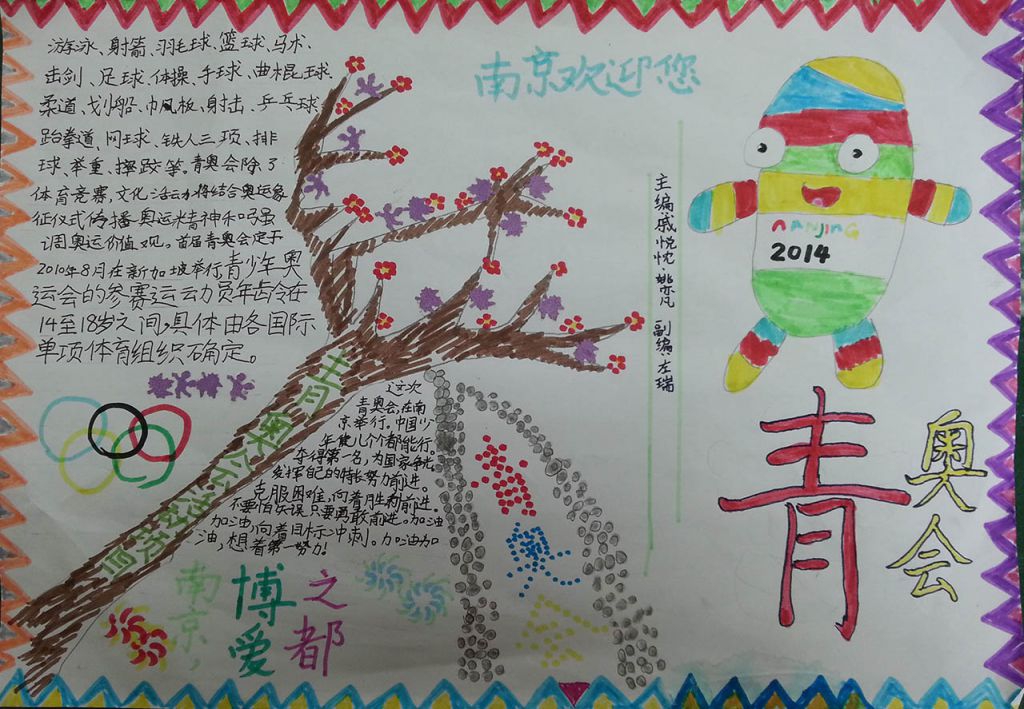 游泳、射箭、羽毛球、篮球、马术、
击剑、足球、体操、手球、曲棍球、
柔道、划船、巾风板、射击、乒乓球、
跆拳道、网球、铁人三项、排
球、举重、摔跤等。青奥会除了
体育竞赛，文化活动将结合奥运象
征仪式传播奥运精神和强
调奥运价值观。首届青奥会定于
2010年8月在新加坡举行青少年奥
运会的参赛运动员年龄令在
14至18岁之间，具体由各国际
单项体育组织确定。
南京欢迎您
主编戚悦忱·姚亦凡 副编左瑞
NANJING
2014
青奥会
这次
青奥会，在南
京举行。中国少
年健儿个个都能行。
夺得第一名，为国家争光
发挥自己的特长努力前进。
克服困难，向着胜利前进
不要怕失误只要勇敢前进。加油
加油，向着目标冲刺。加油加
油，想着第一努力！
青奥会
南京，
博爱
之都